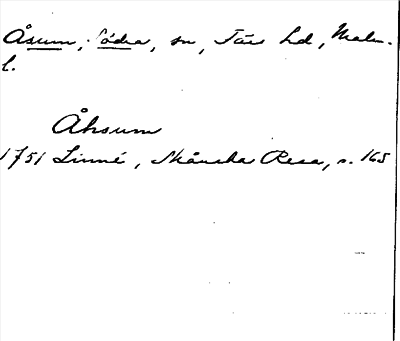 Åsum, Södra, sn, Färs hd, Malm.
l.
Åhsum
1751 Linné, Skånska Resa, s. 165